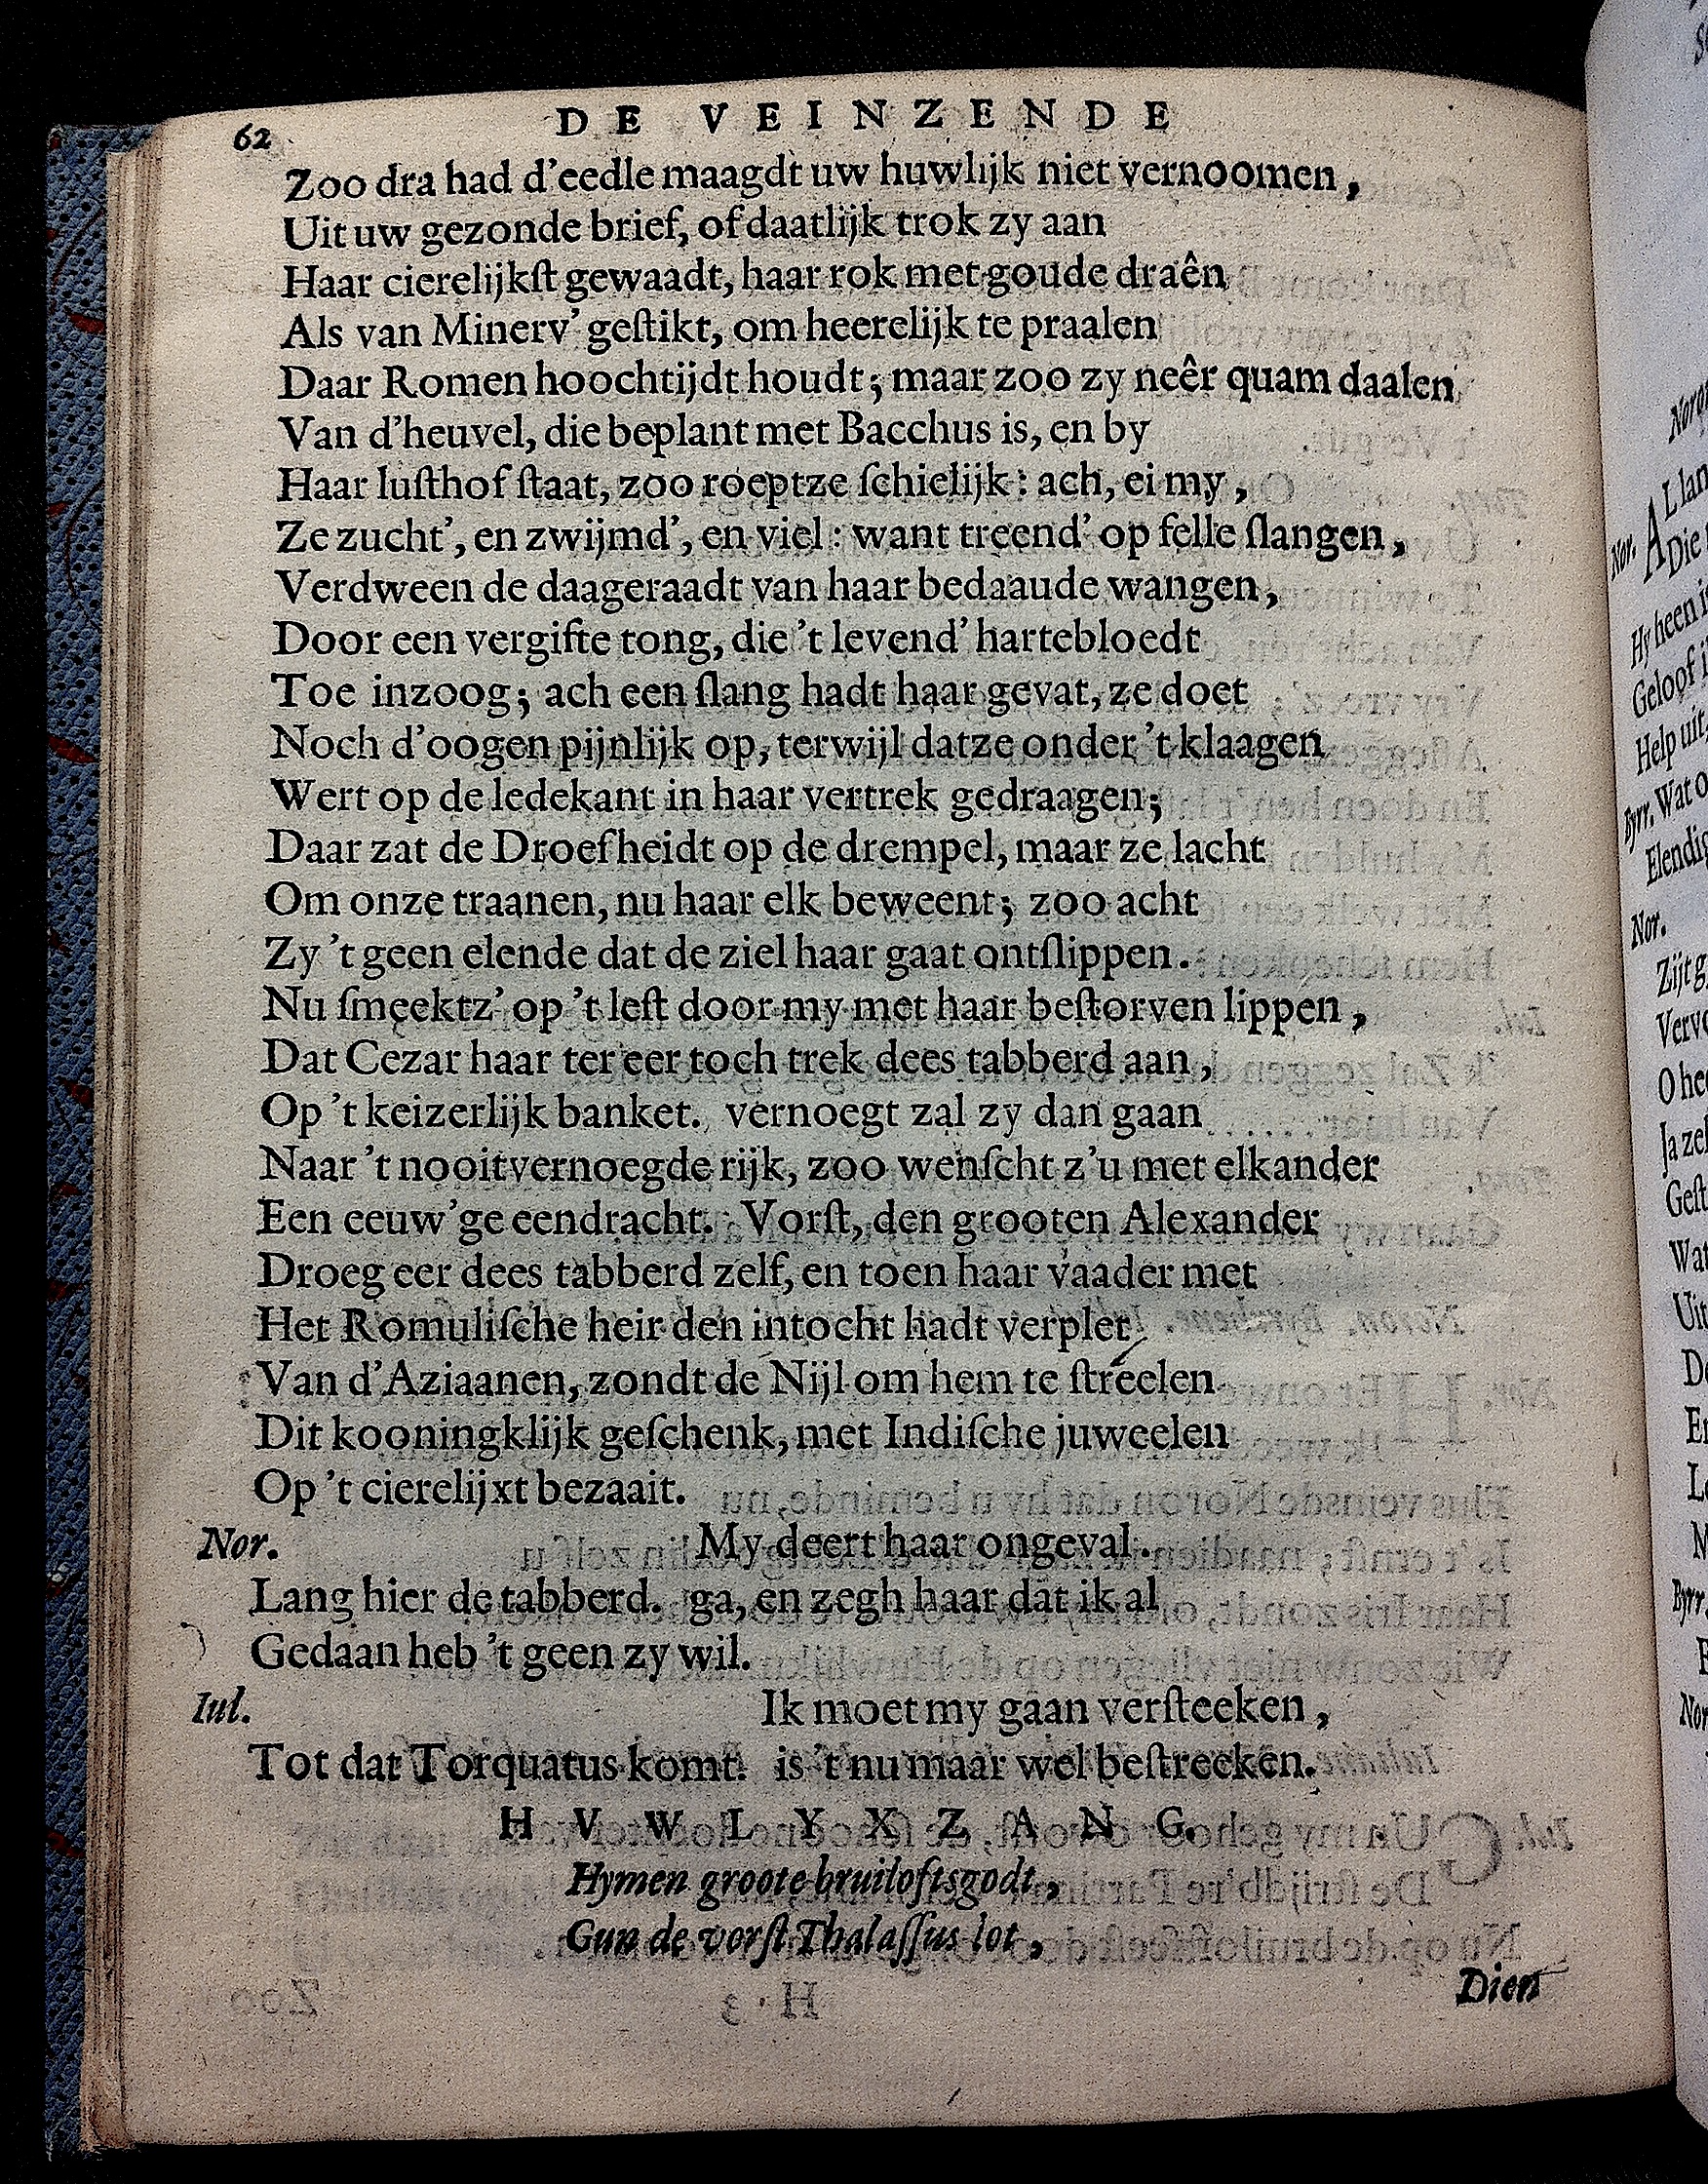 62 DE VEINZENDE
Zoo dra had d'eedle maagdt uw huwlijk niet vernoomen,
Uit uw gezonde brief, of daatlijk trok zy aan
Haar cierelijkſt gewaadt, haar rok met goude draên
Als van Minerv' geſtikt, om heerelijk te praalen
Daar Romen hoochtijdt houdt; maar zoo zy neêr quam daalen
Van d'heuvel, die beplant met Bacchus is, en by
Haar luſthof ſtaat, zoo roeptze ſchielijk: ach, ei my,
Ze zucht', en zwijmd', en viel: want treend' op felle ſlangen,
Verdween de daageraadt van haar bedaaude wangen,
Door een vergifte tong, die 't levend' hartebloedt
Toe inzoog; ach een ſlang hadt haar gevat, ze doet
Noch d'oogen pijnlijk op, terwijl datze onder 't klaagen
Wert op de ledekant in haar vertrek gedraagen;
Daar zat de Droefheidt op de drempel, maar ze lacht
Om onze traanen, nu haar elk beweent; zoo acht
Zy 't geen elende dat de ziel haar gaat ontſlippen.
Nu ſmeektz' op 't leſt door my met haar beſtorven lippen,
Dat Cezar haar ter eer toch trek dees tabberd aan,
Op 't keizerlijk banket. vernoegt zal zy dan gaan
Naar 't nooitvernoegde rijk, zoo wenſcht z'u met elkander
Een eeuw'ge eendracht. Vorſt, den grooten Alexander
Droeg eer dees tabberd zelf, en toen haar vaader met
Het Romuliſche heir den intocht hadt verplet
Van d'Aziaanen, zondt de Nijl om hem te ſtreelen
Dit kooningklijk geſchenk, met Indiſche juweelen
Op 't cierelijxt bezaait.
Nor. My deert haar ongeval.
Lang hier de tabberd. ga, en zegh haar dat ik al
Gedaan heb 't geen zy wil.
Iul. Ik moet my gaan verſteeken,
Tot dat Torquatus komt. is 't nu maar wel beſtreeken.
HVWLYXZANG.
Hymen groote bruiloftsgodt,
Gun de vorſt Thalaſſus lot,
Dien